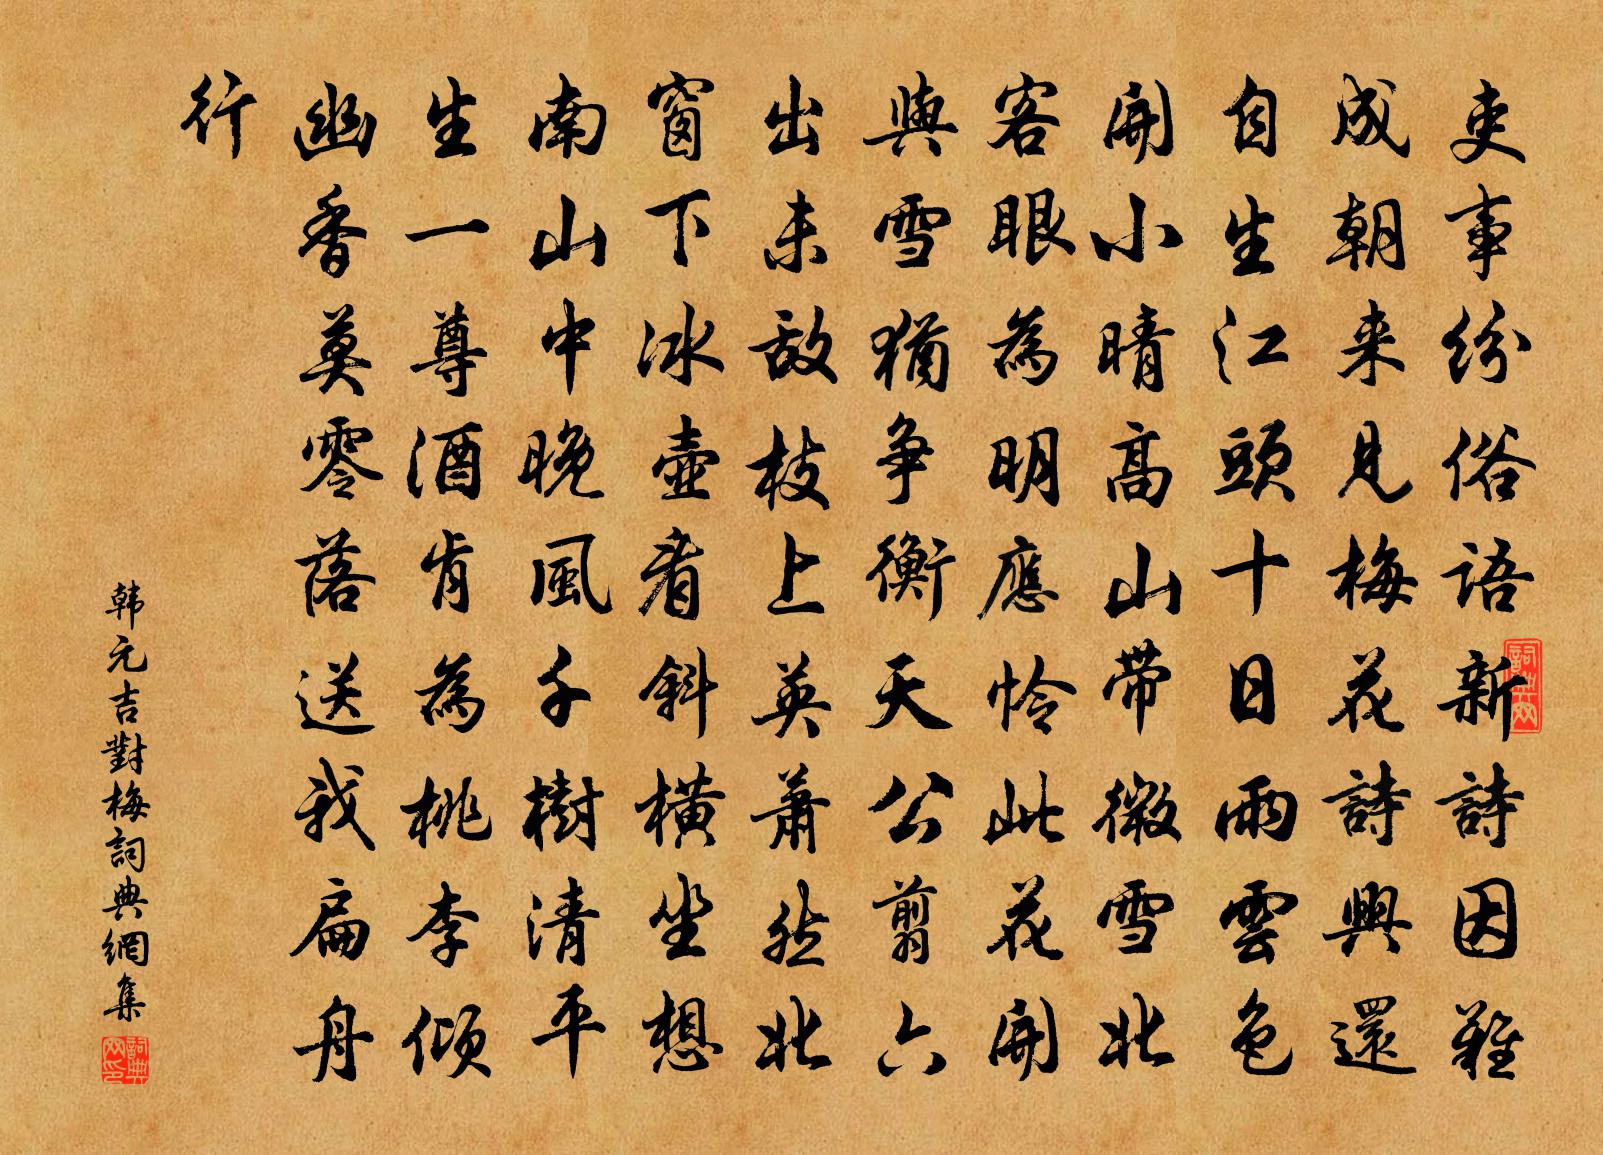 吏事紛俗語新詩因難
成朝来見梅花詩興還
自生江頭十日雨雲色
開小晴高山帶微雪北
客眼為明應怜此花開
與雪猶争衡天公剪六
出未敌枝上英萧然北
窗下冰壺看斜橫坐想
南山中晚風千樹清平
生一尊酒肯為桃李傾
幽香莫零落送我扁舟
行
韩元吉對梅詞典網集
詞典網
詞典網印